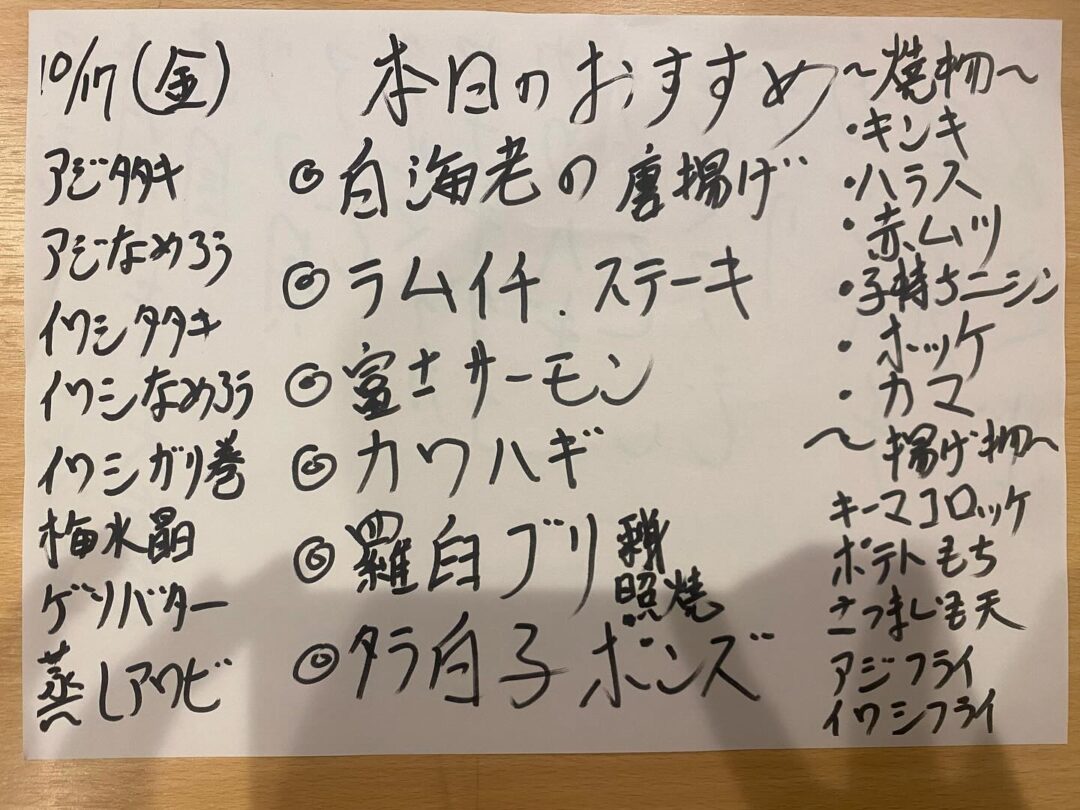 10/17(金)
アジタタキ
アジなめろう
イワシタタキ
イワシなめろう
イワシガリ巻
梅水晶
ゲソバター
蒸しアワビ
本日のおすすめ
◎白海老の唐揚げ
◎ラムイチ.ステーキ
◎富士サーモン
◎カワハギ
◎羅臼ブリ 刺 照焼
◎タラ白子ポンズ
〜焼物〜
・キンキ
・ハラス
・赤ムツ
・子持ちニシン
・ホッケ
・カマ
〜揚げ物〜
キーマコロッケ
ポテトもち
さつまじも天
アジフライ
イワシフライ